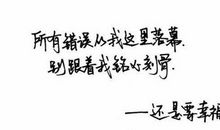 所有错误从我这里落幕.
别跟着我铭心刻骨.
——还是要幸福